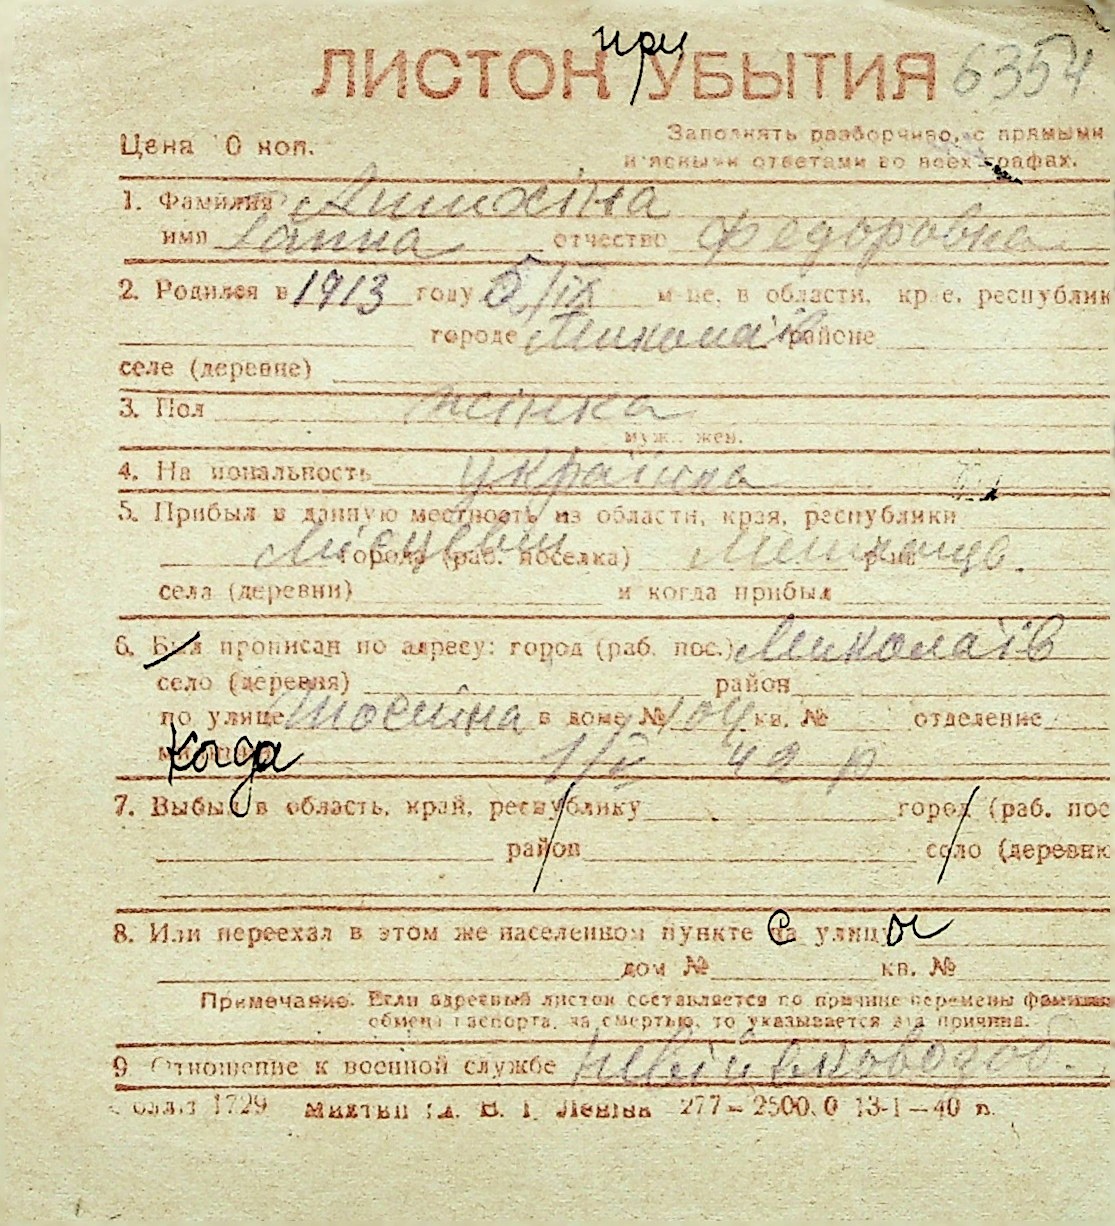 ЛИСТОК при УБЫТИЯ 6354
Цена 10 коп.
Заполнять разборчиво, с прямыми
и ясными ответами во всех графах.
1. Фамилия Анихіна
имя Ганна отчество Федоровна
2. Родился в 1913 году 5/IX м-це, в области, крае, республик
городе Миколаїв районе
селе (деревне)
3. Пол жінка
муж., жен.
4. Национальность українка
5. Прибыл в данную местность из области, края, республики
города (раб. поселка) р-на
села (деревни) и когда прибыл
6. Был прописан по адресу: город (раб. пос.) Миколаїв
село (деревня) район
по улице в доме № 104 кв. № отделение
милиции когда 1/V 42 р
7. Выбыл в область, край, республику город (раб. пос
район село (деревню
8. Или переехал в этом же населенном пункте на с улицу ы
дом № кв. №
Примечание. Если адресный листок составляется по причине перемены фамилии
обмена паспорта, за смертью, то указывается эта причина.
9 Отношение к военной службе невійсковозоб.
1729 277–2500.0 13-I–40 п.